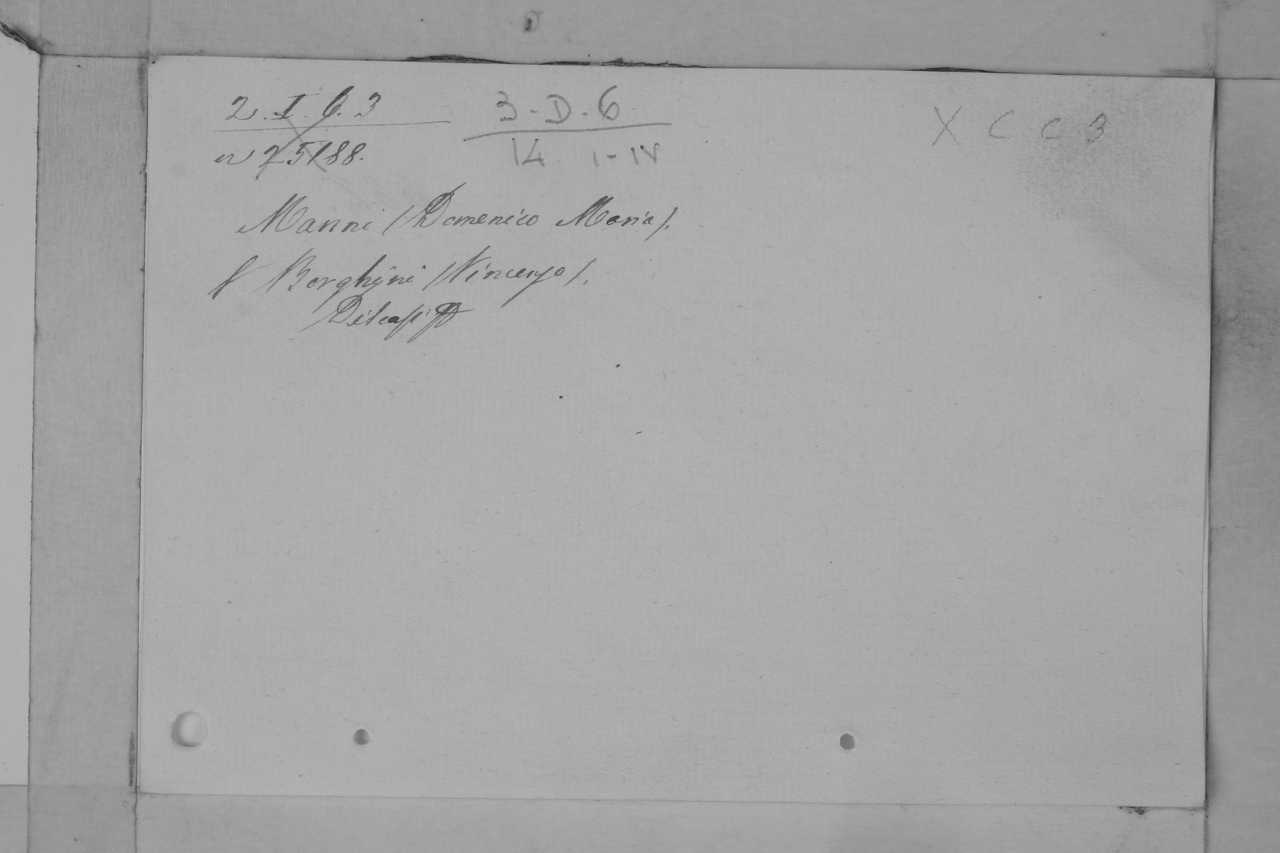 2. I. 6. 3
3-D-6
X C C 3
n 75188.
14 I-IV
Manni (Domenico Maria).
Borghini (Vincenzo).